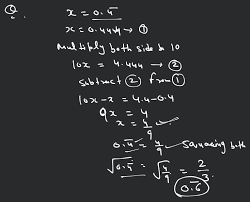 Q. x = 0.4̅
x = 0.444 → ①
Multiply both side by 10
10x = 4.444 → ②
subtract ② from ①
10x-x = 4.4-0.4
9x = 4
x = 4/9
0.4̅ = 4/9 both
√0.4̅ = √4/9 = 2/3
0.6̅